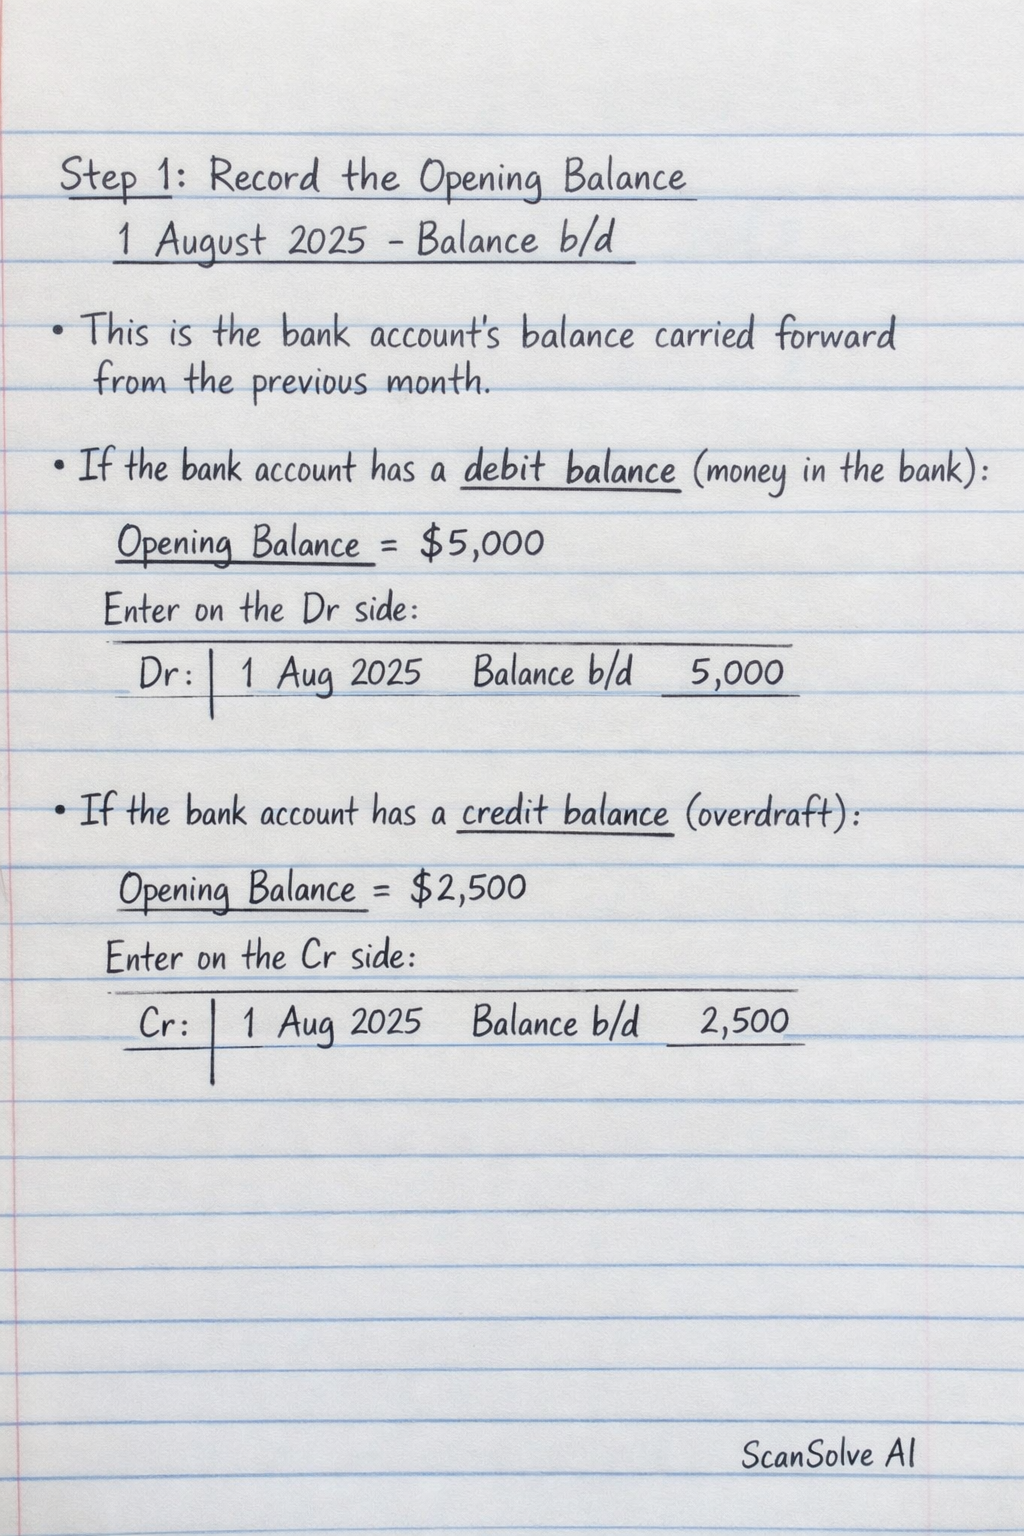 Step 1: Record the Opening Balance
1 August 2025 - Balance b/d
• This is the bank account's balance carried forward
from the previous month.
• If the bank account has a debit balance (money in the bank):
Opening Balance = $5,000
Enter on the Dr side:
Dr: 1 Aug 2025 Balance b/d 5,000
• If the bank account has a credit balance (overdraft):
Opening Balance = $2,500
Enter on the Cr side:
Cr: 1 Aug 2025 Balance b/d 2,500
ScanSolve AI